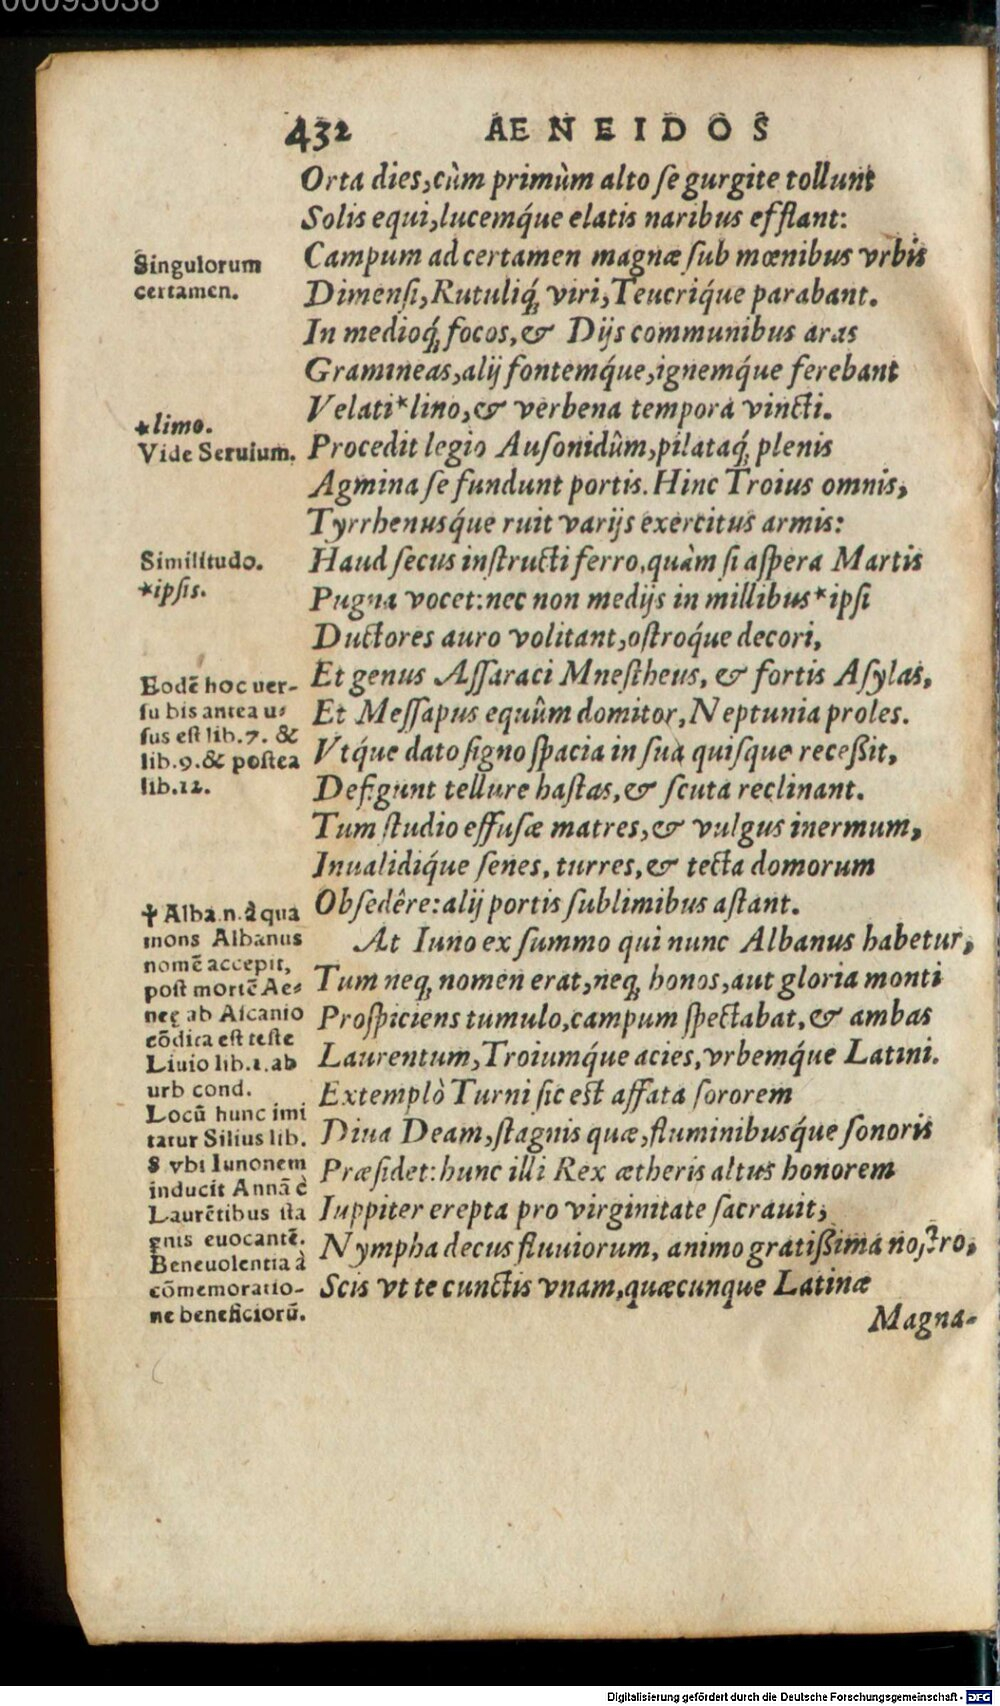 00093038
432 AENEIDOS
Orta dies, cùm primùm alto se gurgite tollunt
Solis equi, lucemq́ue elatis naribus efflant:
Singulorum
certamen.
Campum ad certamen magnæ sub mœnibus vrbis
Dimensi, Rutuliq́; viri, Teucriq́ue parabant.
In medioq́; focos, & Dijs communibus aras
Gramineas, alij fontemq́ue, ignemq́ue ferebant
Velati*lino, & verbena tempora vincti.
*limo.
Vide Seruium.
Procedit legio Ausonidûm, pilataq́; plenis
Agmina se fundunt portis. Hinc Troius omnis,
Tyrrhenusq́ue ruit varijs exercitus armis:
Similitudo.
*ipsis.
Haud secus instructi ferro, quàm si aspera Martis
Pugna vocet: nec non medijs in millibus*ipsi
Ductores auro volitant, ostroq́ue decori,
Et genus Assaraci Mnestheus, & fortis Asylas,
Et Messapus equûm domitor, Neptunia proles.
Eodē hoc uer-
su bis antea u-
sus est lib.7. &
lib.9.& postea
lib.12.
Vtq́ue dato signo spacia in sua quisque receßit,
Defigunt tellure hastas, & scuta reclinant.
Tum studio effusæ matres, & vulgus inermum,
Inualidiq́ue senes, turres, & tecta domorum
Obsedêre: alij portis sublimibus astant.
At Iuno ex summo qui nunc Albanus habetur,
Tum neq; nomen erat, neq; honos, aut gloria monti
Prospiciens tumulo, campum spectabat, & ambas
Laurentum, Troiumq́ue acies, vrbemq́ue Latini.
Extemplò Turni sic est affata sororem
Diua Deam, stagnis quæ, fluminibusq́ue sonoris
Præsidet: hunc illi Rex ætheris altus honorem
Iuppiter erepta pro virginitate sacrauit,
Nympha decus fluuiorum, animo gratißima nostro,
Scis vt te cunctis vnam, quæcunque Latinæ
✝ Alba.n.à qua
mons Albanus
nomē accepit,
post mortē Ae-
neę ab Ascanio
cōdita est teste
Liuio lib.1.ab
urb cond.
Locū hunc imi
tatur Silius lib.
8 vbi Iunonem
inducit Annā è
Laurētibus sta
gnis euocantē.
Beneuolentia à
cōmemoratio-
ne beneficiorū.
Magna-
Digitalisierung gefördert durch die Deutsche Forschungsgemeinschaft - DFG